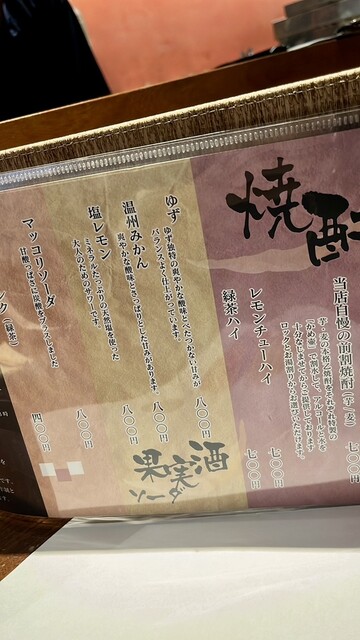 焼酎
当店自慢の前割焼酎(芋・麦)
芋・麦の本格乙焼酎をそれぞれ特製の
「かめ壷」で割水して、アルコールと水を
十分なじませてからご提供しております
ロックもお湯割りからお選びいただけます。
七〇〇円
レモンチューハイ
七〇〇円
緑茶ハイ
七〇〇円
果実酒
ソーダ
ゆず
ゆず独特の爽やかな酸味とべたつかない甘みが
バランスよく仕上がっています。
八〇〇円
温州みかん
爽やかな酸味とさっぱりとした甘みがあります。
八〇〇円
塩レモン
ミネラルたっぷりの天然塩を使った
大人のためのサワーです。
八〇〇円
マッコリソーダ
甘酸っぱさと炭酸をプラスしました
四〇〇円
(緑茶)